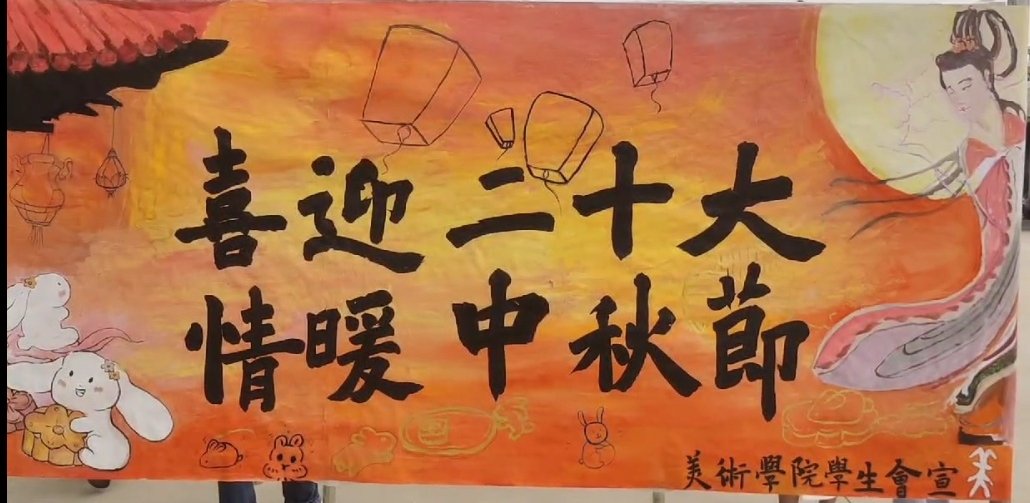 喜迎二十大
情暖中秋節
美術學院學生會宣